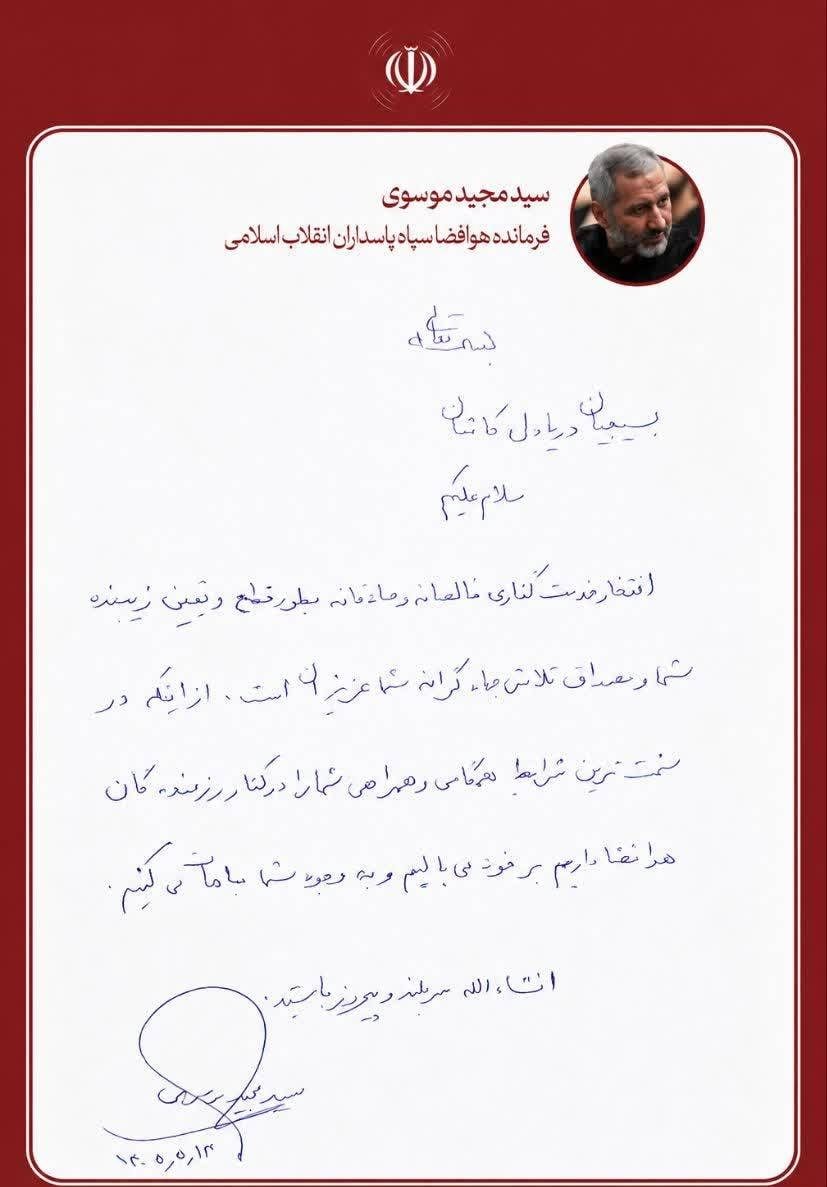 سید مجید موسوی
فرمانده هوافضا سپاه پاسداران انقلاب اسلامی
بسمه تعالی
بسیجیان دریادل کاشان
سلام علیکم
افتخار خدمت گذاری خالصانه و صادقانه بطور قطع و یقین زیبنده
شما و مصداق تلاش جهادگرانه شما عزیزان است. از اینکه در
سخت ترین شرایط همگامی و همراهی شما را در کنار رزمنده گان
هوافضا داریم بر خود می بالیم و به وجود شما مباهات می کنیم.
انشاءالله سربلند و پیروز باشید.
سید مجید موسوی
۱۴۰۵,۵,۱۳